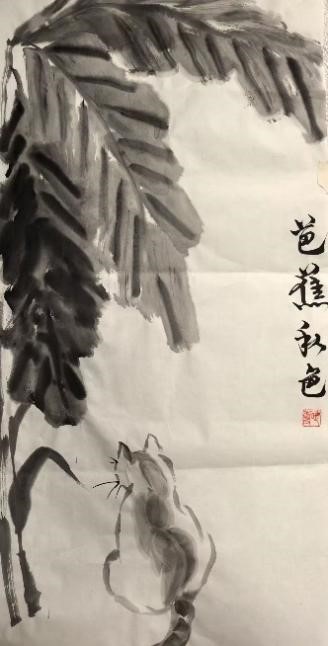 芭蕉秋色